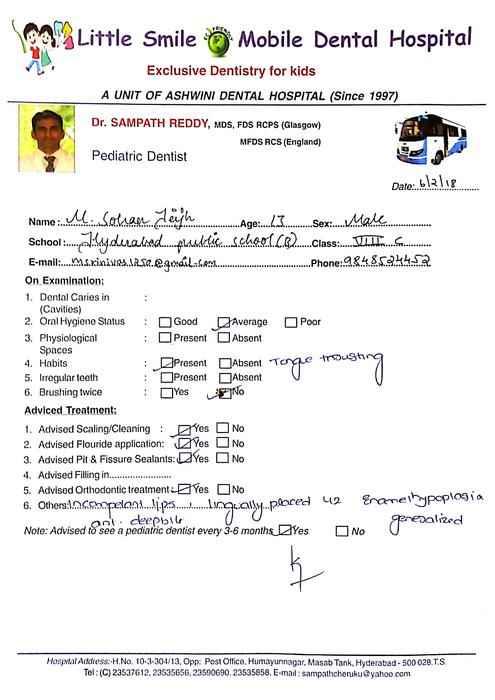 Little Smile Mobile Dental Hospital
Exclusive Dentistry for kids
A UNIT OF ASHWINI DENTAL HOSPITAL (Since 1997)
Dr. SAMPATH REDDY, MDS, FDS RCPS (Glasgow)
MFDS RCS (England)
Pediatric Dentist
Date: 6/2/18
Name: M. Sohan Age: 13 Sex: Male
School: Hyderabad public school (R) Class: VIII C
E-mail: msrinivas1250@gmail.com Phone: 9848524452
On Examination:
1. Dental Caries in :
(Cavities)
2. Oral Hygiene Status : Good Average Poor
3. Physiological : Present Absent
Spaces
4. Habits : Present Absent Tongue trousting
5. Irregular teeth : Present Absent
6. Brushing twice : Yes No
Adviced Treatment:
1. Advised Scaling/Cleaning : Yes No
2. Advised Flouride application: Yes No
3. Advised Pit & Fissure Sealants: Yes No
4. Advised Filling in....................
5. Advised Orthodontic treatment: Yes No
6. Others: Incompetant lips, lingually placed 42 Enamelhypoplasia
ant. deepbite generalized
Note: Advised to see a pediatric dentist every 3-6 months Yes No
Hospital Address:-H.No. 10-3-304/13, Opp: Post Office, Humayunnagar, Masab Tank, Hyderabad - 500 028.T.S.
Tel : (C) 23537612, 23535656, 23590690, 23535858. E-mail : sampathcheruku@yahoo.com